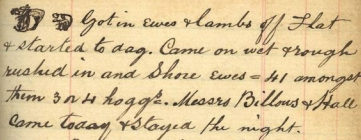 Got in Ewes & lambs off Flat
& started to dag. Came on wet & rough
rushed in and Shore Ewes = 41 amongst
them 3 or 4 hoggs. Messrs Billows & Hall
came today & Stayed the night.